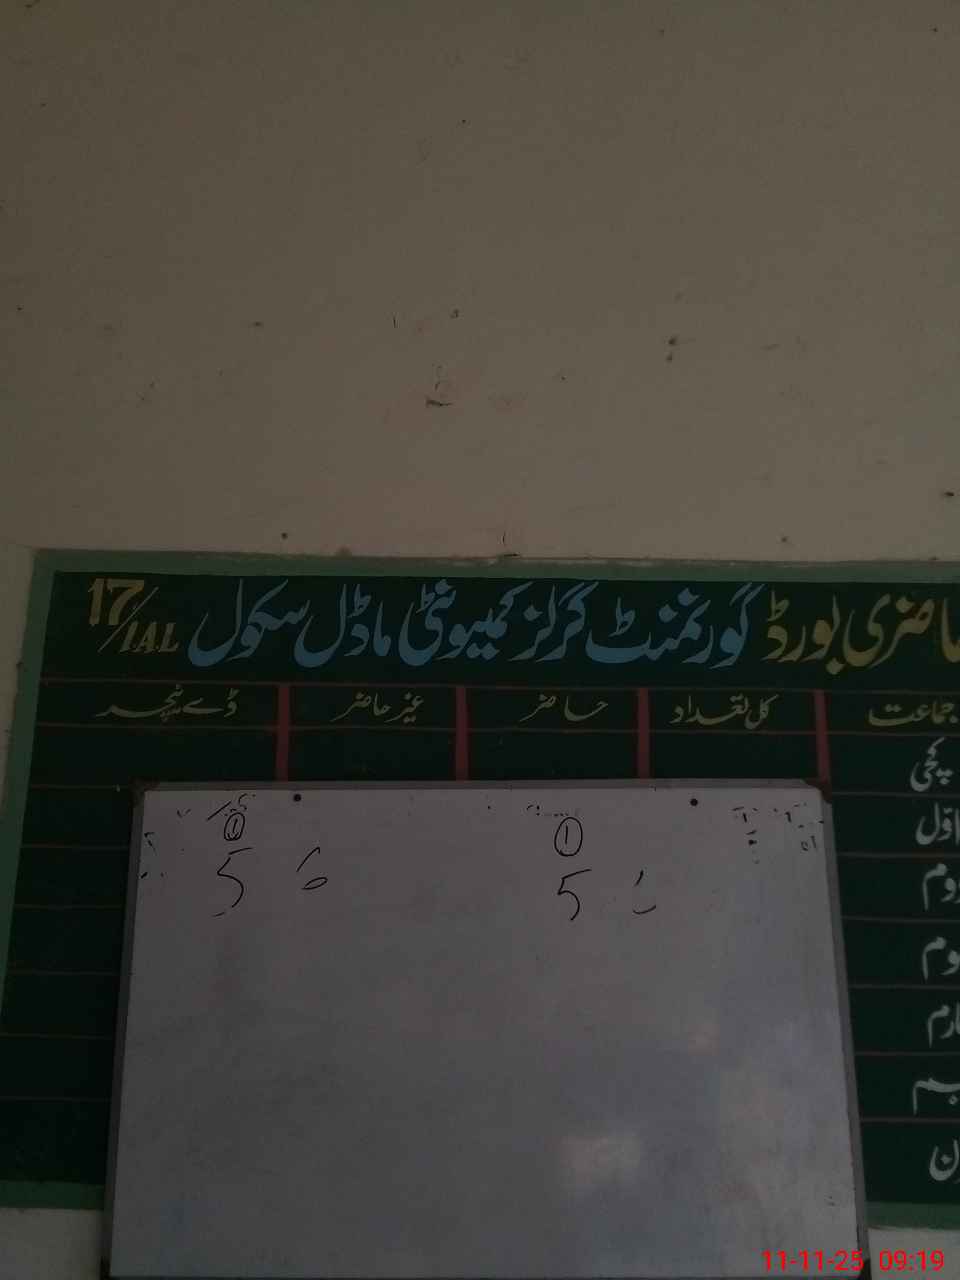 حاضری بورڈ گورنمنٹ گرلز کمیونٹی ماڈل سکول 17/1AL
جماعت کل تعداد حاضر غیر حاضر ڈے ٹیچر
کچی
اوّل
دوم
سوم
① ①
5 6 5
11-11-25 09:19